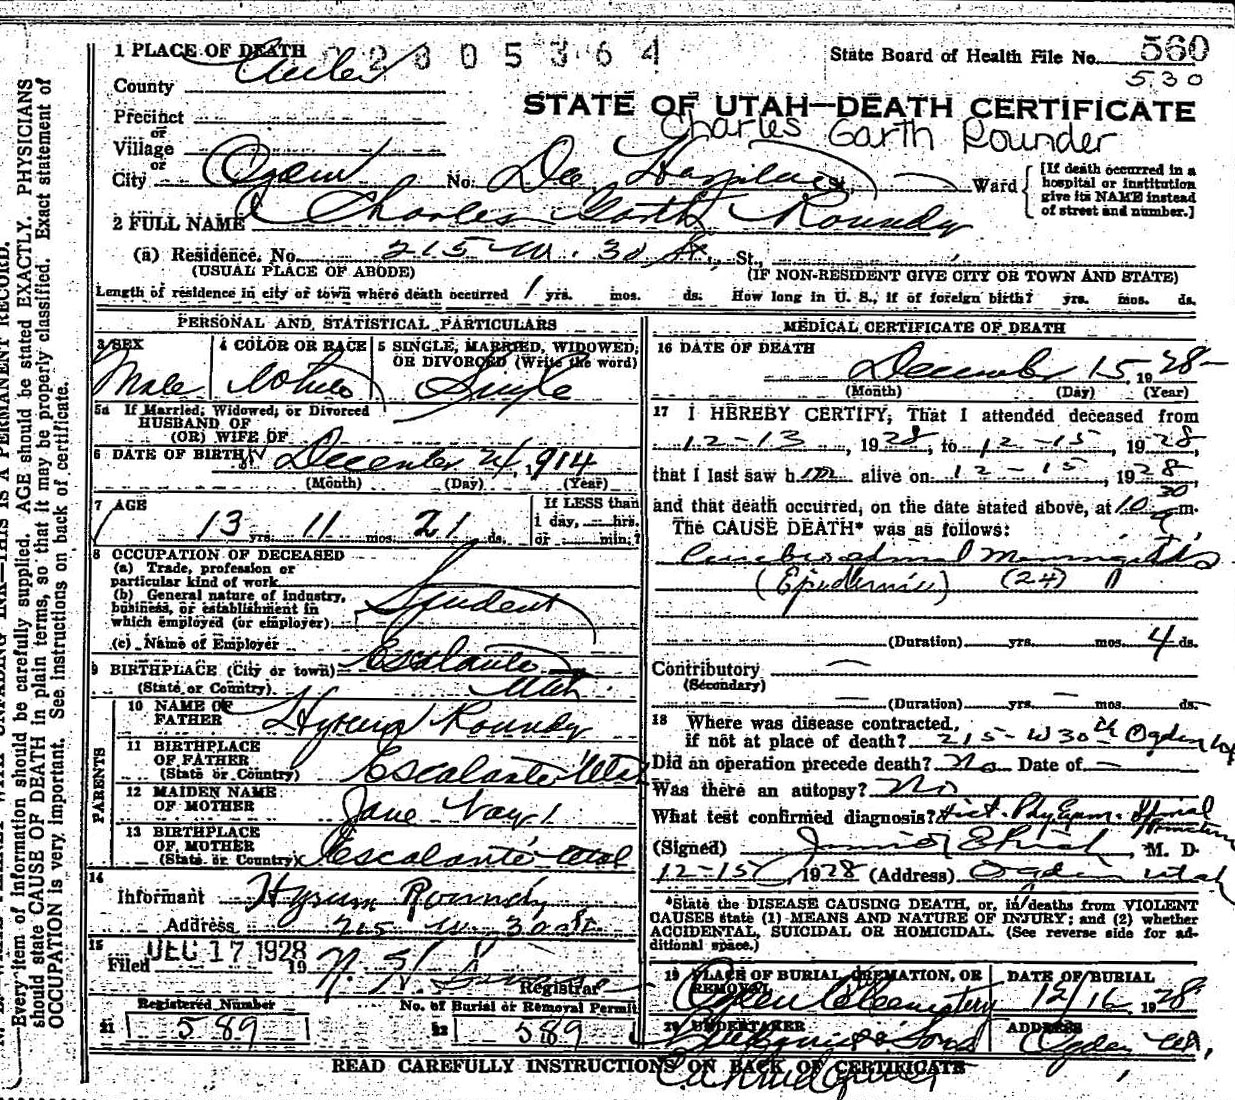 1 PLACE OF DEATH
2805364
State Board of Health File No. 560
530
County
STATE OF UTAH—DEATH CERTIFICATE
Charles Garth Rounder
Precinct
or
Village
or
City Ogden No. Dee Hospital St., Ward
[If death occurred in a
hospital or institution
give its NAME instead
of street and number.]
2 FULL NAME Charles Garth Roundy
(a) Residence. No. 215 W. 30 St., St.,
(USUAL PLACE OF ABODE) (IF NON-RESIDENT GIVE CITY OR TOWN AND STATE)
Length of residence in city or town where death occurred 1 yrs. mos. ds. How long in U. S., if of foreign birth? yrs. mos. ds.
PERSONAL AND STATISTICAL PARTICULARS
3 SEX
Male
4 COLOR OR RACE
White
5 SINGLE, MARRIED, WIDOWED,
OR DIVORCED (Write the word)
Single
5a If Married, Widowed, or Divorced
HUSBAND OF
(OR) WIFE OF
6 DATE OF BIRTH December 24, 1914
(Month) (Day) (Year)
7 AGE
13 yrs. 11 mos. 21 ds.
If LESS than
1 day, hrs.
or min.?
8 OCCUPATION OF DECEASED
(a) Trade, profession or
particular kind of work
(b) General nature of industry,
business, or establishment in
which employed (or employer)
Student
(c) Name of Employer
9 BIRTHPLACE (City or town) Escalante
(State or Country) Utah
PARENTS
10 NAME OF
FATHER Hyrum Roundy
11 BIRTHPLACE
OF FATHER
(State or Country) Escalante Utah
12 MAIDEN NAME
OF MOTHER Jane
13 BIRTHPLACE
OF MOTHER
(State or Country) Escalante Utah
14
Informant Hyrum Roundy
Address 215 W. 30 St.
15
Filed DEC 17 1928 19
Registrar
Registered Number
21 589
No. of Burial or Removal Permit
22 589
MEDICAL CERTIFICATE OF DEATH
16 DATE OF DEATH
December 15, 1928
(Month) (Day) (Year)
17 I HEREBY CERTIFY, That I attended deceased from
12-13, 1928, to 12-15, 1928,
that I last saw him alive on 12-15, 1928
and that death occurred, on the date stated above, at 10 30 a m.
The CAUSE DEATH* was as follows:
Cerebrospinal Meningitis
(Epidemic) (24)
(Duration) yrs. mos. 4 ds.
Contributory
(Secondary)
(Duration) yrs. mos. ds.
18 Where was disease contracted,
if not at place of death? 215-W 30th Ogden
Did an operation precede death? No Date of
Was there an autopsy? No
What test confirmed diagnosis? Hist. Phy Exam. Spinal
Puncture
(Signed) , M. D.
12-15, 1928 (Address) Ogden Utah
*State the DISEASE CAUSING DEATH, or, in deaths from VIOLENT
CAUSES state (1) MEANS AND NATURE OF INJURY; and (2) whether
ACCIDENTAL, SUICIDAL OR HOMICIDAL. (See reverse side for ad-
ditional space.)
19 PLACE OF BURIAL, CREMATION, OR
REMOVAL
Ogden Cemetery
DATE OF BURIAL
12/16, 1928
20 UNDERTAKER
& Sons
ADDRESS
Ogden
READ CAREFULLY INSTRUCTIONS ON BACK OF CERTIFICATE
Every item of information should be carefully supplied. AGE should be stated EXACTLY. PHYSICIANS
should state CAUSE OF DEATH in plain terms, so that it may be properly classified. Exact statement of
OCCUPATION is very important. See instructions on back of certificate.